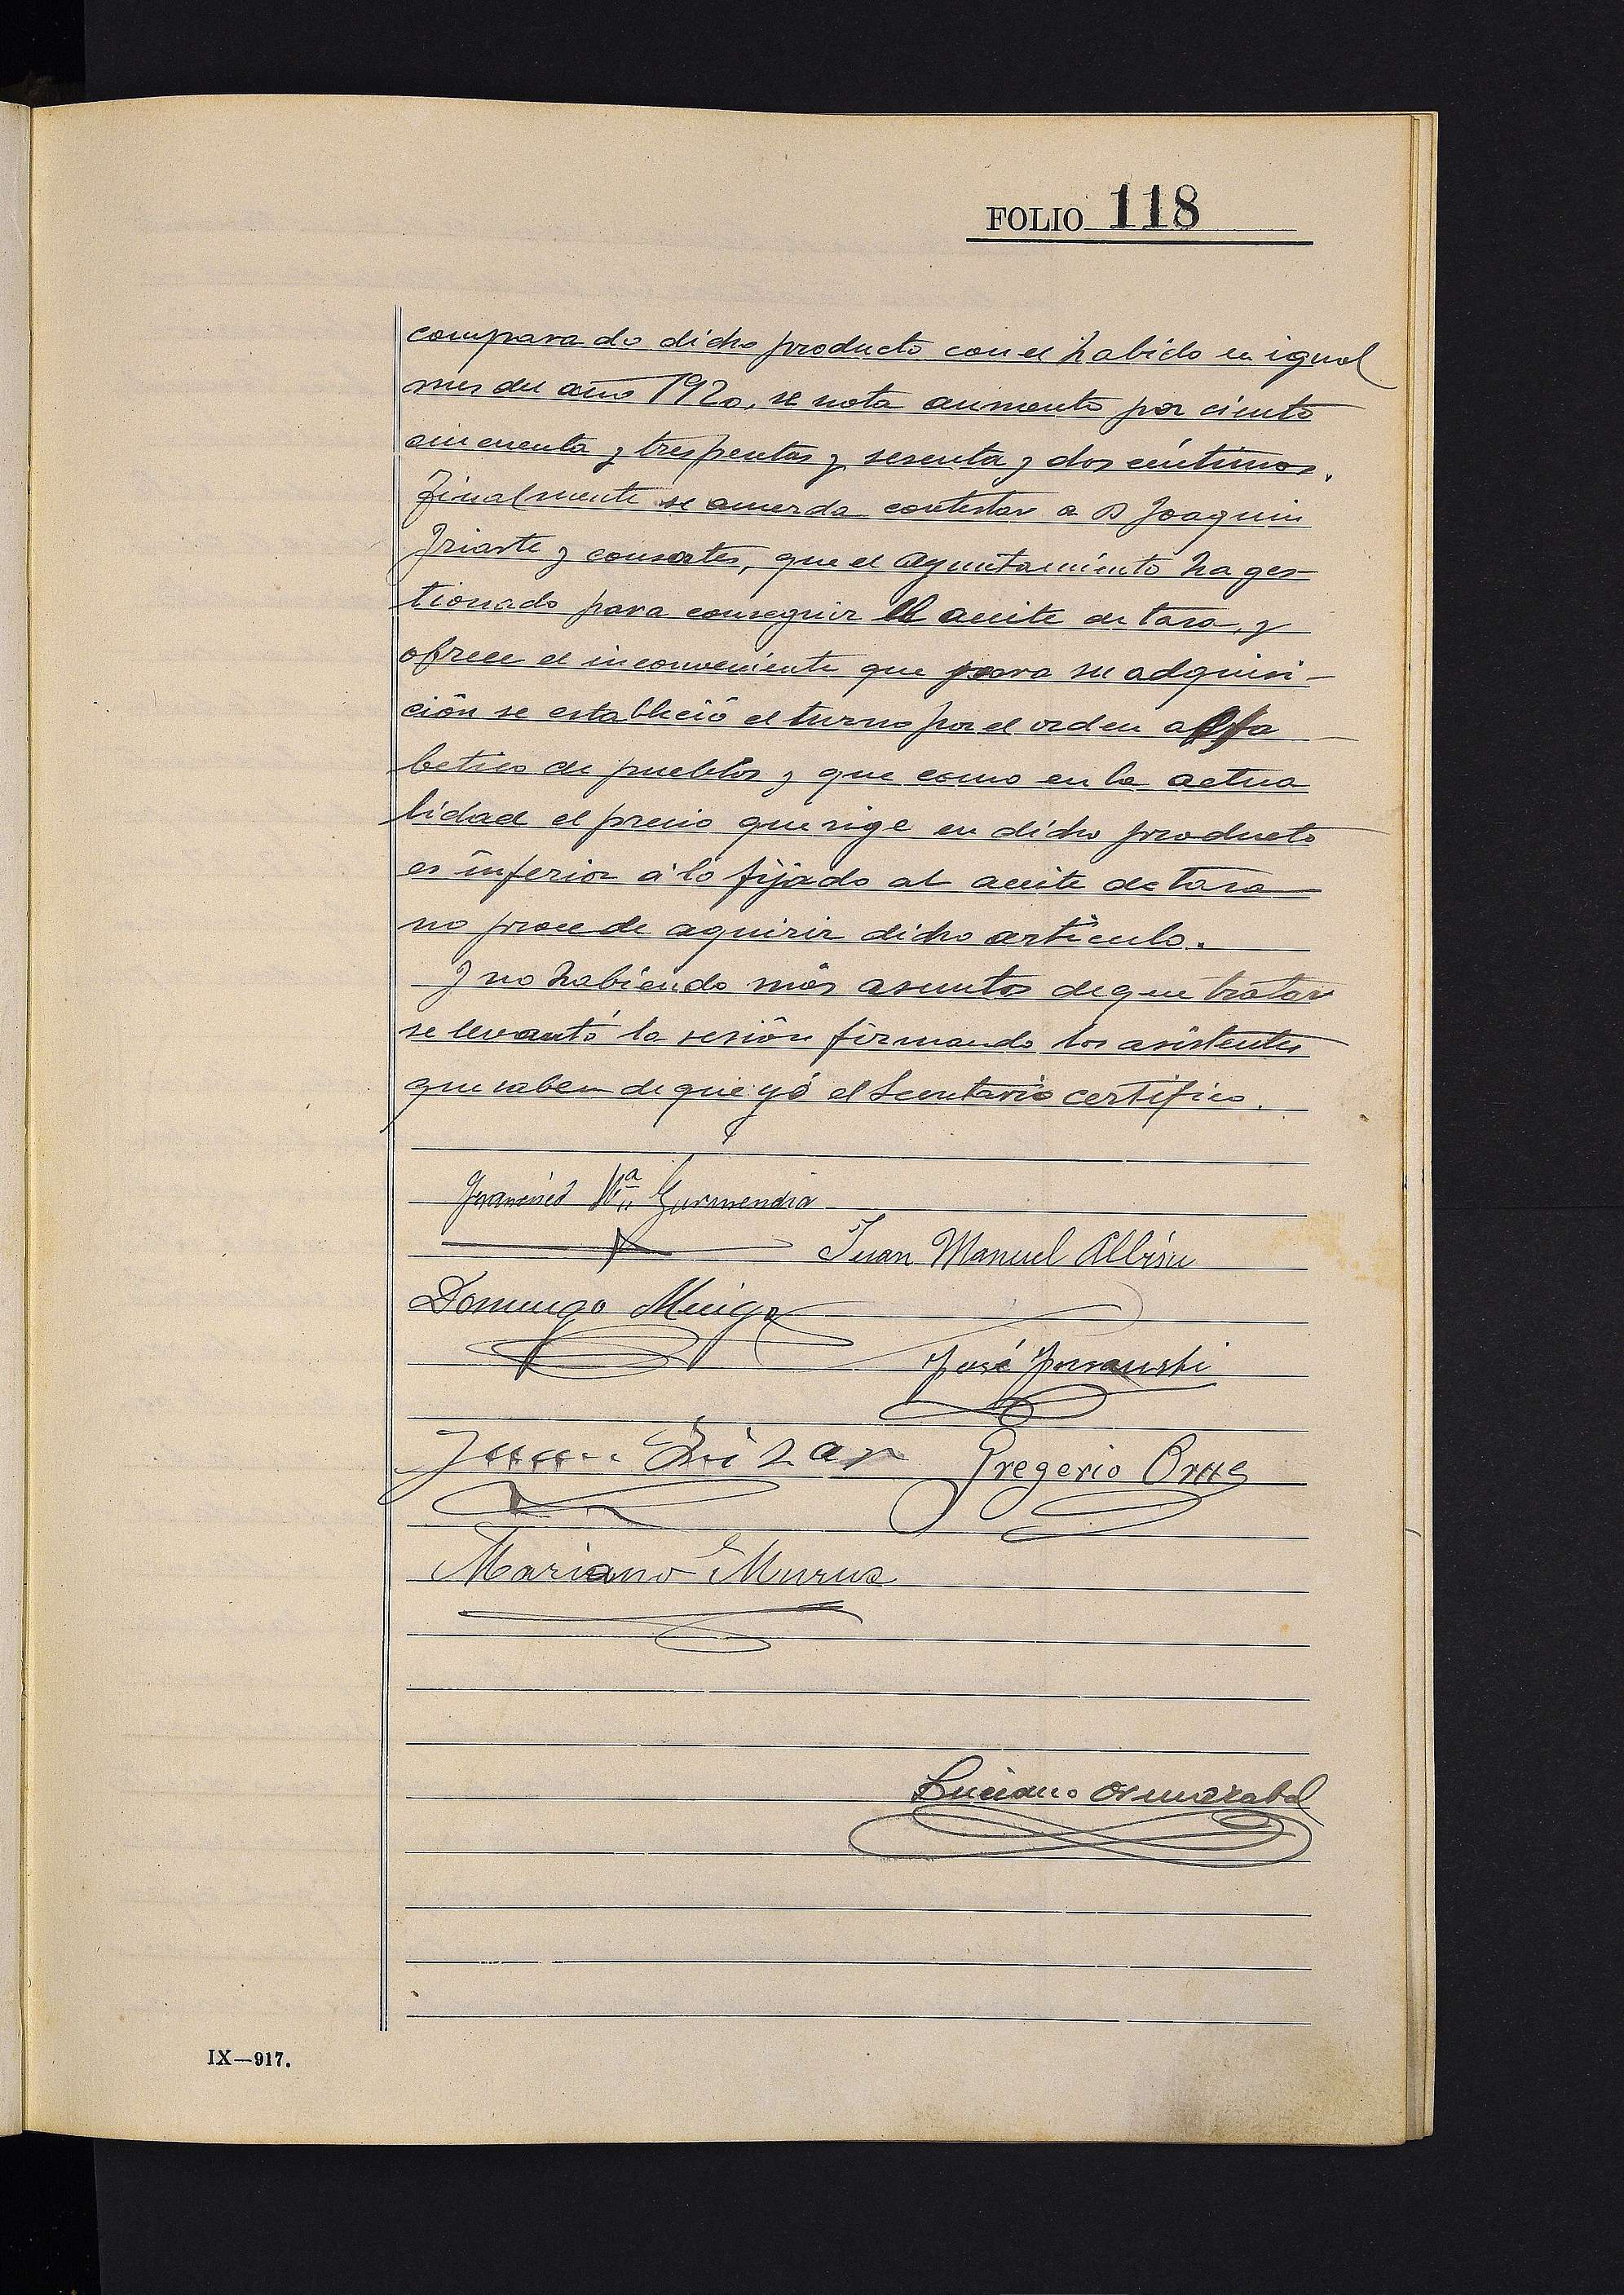 FOLIO 118
comparado dicho producto con el habido en igual
mes del año 1920, se nota aumento por ciento
cincuenta y tres pesetas y sesenta y dos céntimos.
Finalmente se acuerda contestar a D Joaquin
Iriarte y consortes, que el Ayuntamiento ha ges-
tionado para conseguir el aceite de tasa, y
ofrece el inconveniente que para su adquisi-
ción se estableció el turno por el orden alfa
betico de pueblos y que como en la actua
lidad el precio que rige en dicho producto
es inferior á lo fijado al aceite de tasa
no procede aquirir dicho artículo.
Y no habiendo más asuntos de que tratar
se levantó la sesión firmando los asistentes
que saben de que yó el Secretario certifico.
Francisco Mª Garmendia
Juan Manuel Albisu
Domingo
José
Juan
Gregorio
Mariano Murua
Luciano Ormazabal
IX—917.